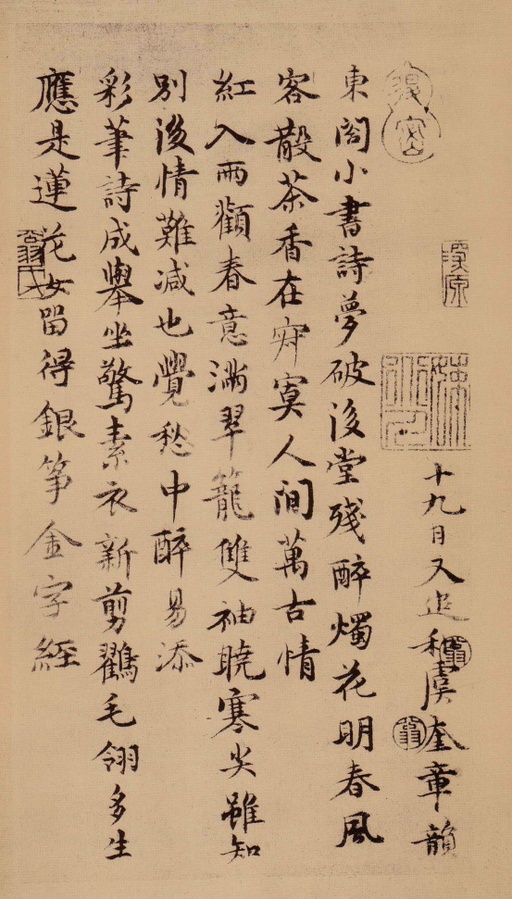 十九日又追和虞奎章韻
東閤小書詩夢破後堂殘醉燭花明春風
客散茶香在寂寞人間萬古情
紅入兩顴春意滿翠籠雙袖曉寒尖雖知
別後情難減也覺愁中醉易添
彩筆詩成舉坐驚素衣新剪鸛毛翎多生
應是蓮花女留得銀箏金字經